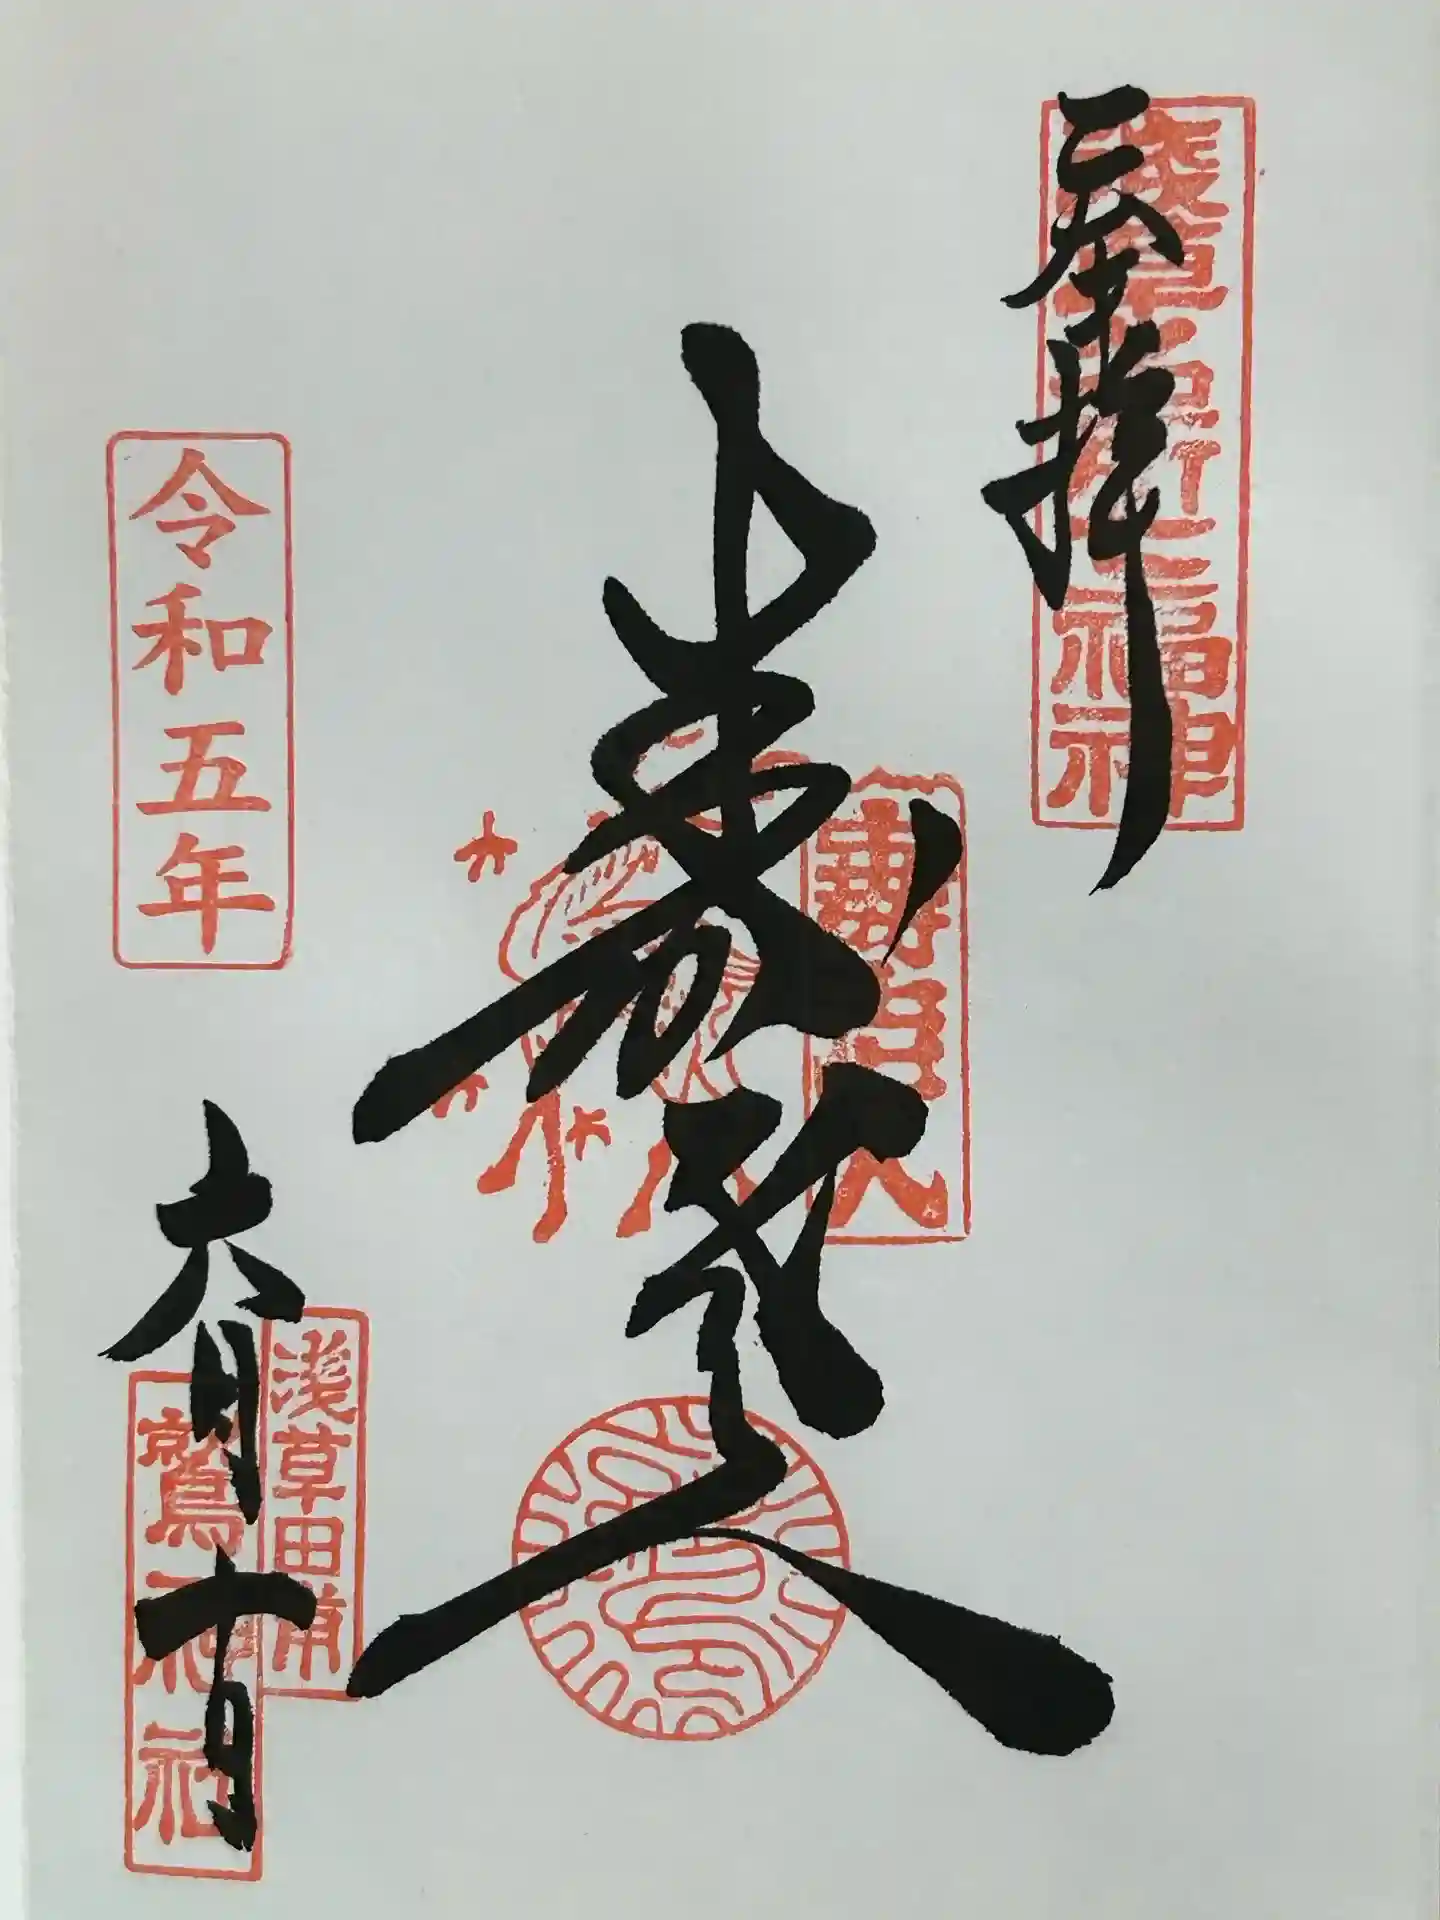 奉拝
浅草名所七福神
寿老人
寿老人
令和五年
六月十日
浅草田甫
鷲神社